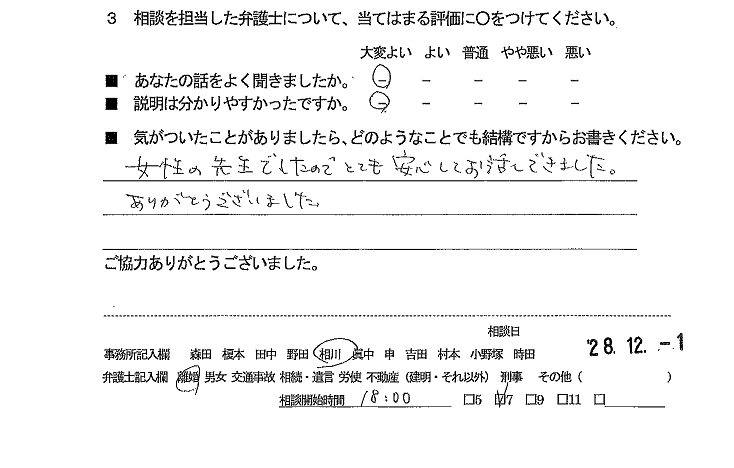 3 相談を担当した弁護士について、当てはまる評価に○をつけてください。
大変よい よい 普通 やや悪い 悪い
■ あなたの話をよく聞きましたか。 － － － － －
■ 説明は分かりやすかったですか。 － － － － －
■ 気がついたことがありましたら、どのようなことでも結構ですからお書きください。
女性の先生でしたのでとても安心してお話しできました。
ありがとうございました。
ご協力ありがとうございました。
相談日
事務所記入欄 森田 榎本 田中 野田 相川 眞中 申 吉田 村本 小野塚 時田 '28.12.-1
弁護士記入欄 離婚 男女 交通事故 相続・遺言 労使 不動産（建明・それ以外） 刑事 その他（ ）
相談開始時間 18:00 □5 ☑7 □9 □11 □